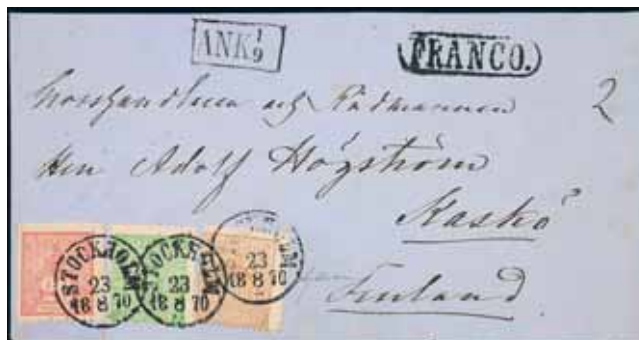 ANK 1/9
FRANCO.
Grosshandlaren och Rådmannen 2
Herr Adolf Högström
Kaskö
Finland
STOCKHOLM 23 8 1870
STOCKHOLM 23 8 1870
23 8 1870